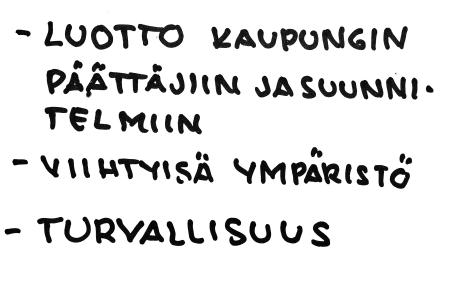 - LUOTTO KAUPUNGIN
PÄÄTTÄJIIN JA SUUNNI-
TELMIIN
- VIIHTYISÄ YMPÄRISTÖ
- TURVALLISUUS